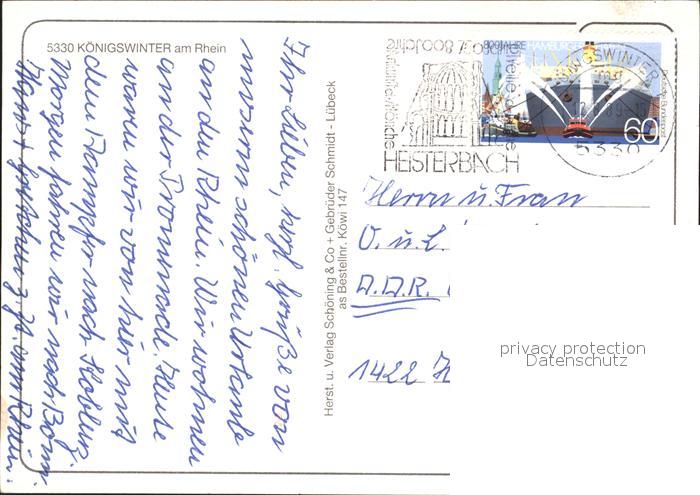 5330 KÖNIGSWINTER am Rhein
Ihr Lieben, herzl. Grüße von
unserem schönen Urlaub
an dem Rhein. Wir wohnen
an der Promenade. Heute
waren wir von hier mit
dem Dampfer nach Koblenz.
Morgen fahren wir nach Bonn.
Herst. u. Verlag Schöning & Co + Gebrüder Schmidt - Lübeck
as Bestellnr. Köwi 147
800 Jahre
HEISTERBACH
800 JAHRE HAMBURGER
Deutsche Bundespost
60
KÖNIGSWINTER
5330
Herrn u. Frau
O. u. L.
D.D.R.
1422
privacy protection
Datenschutz